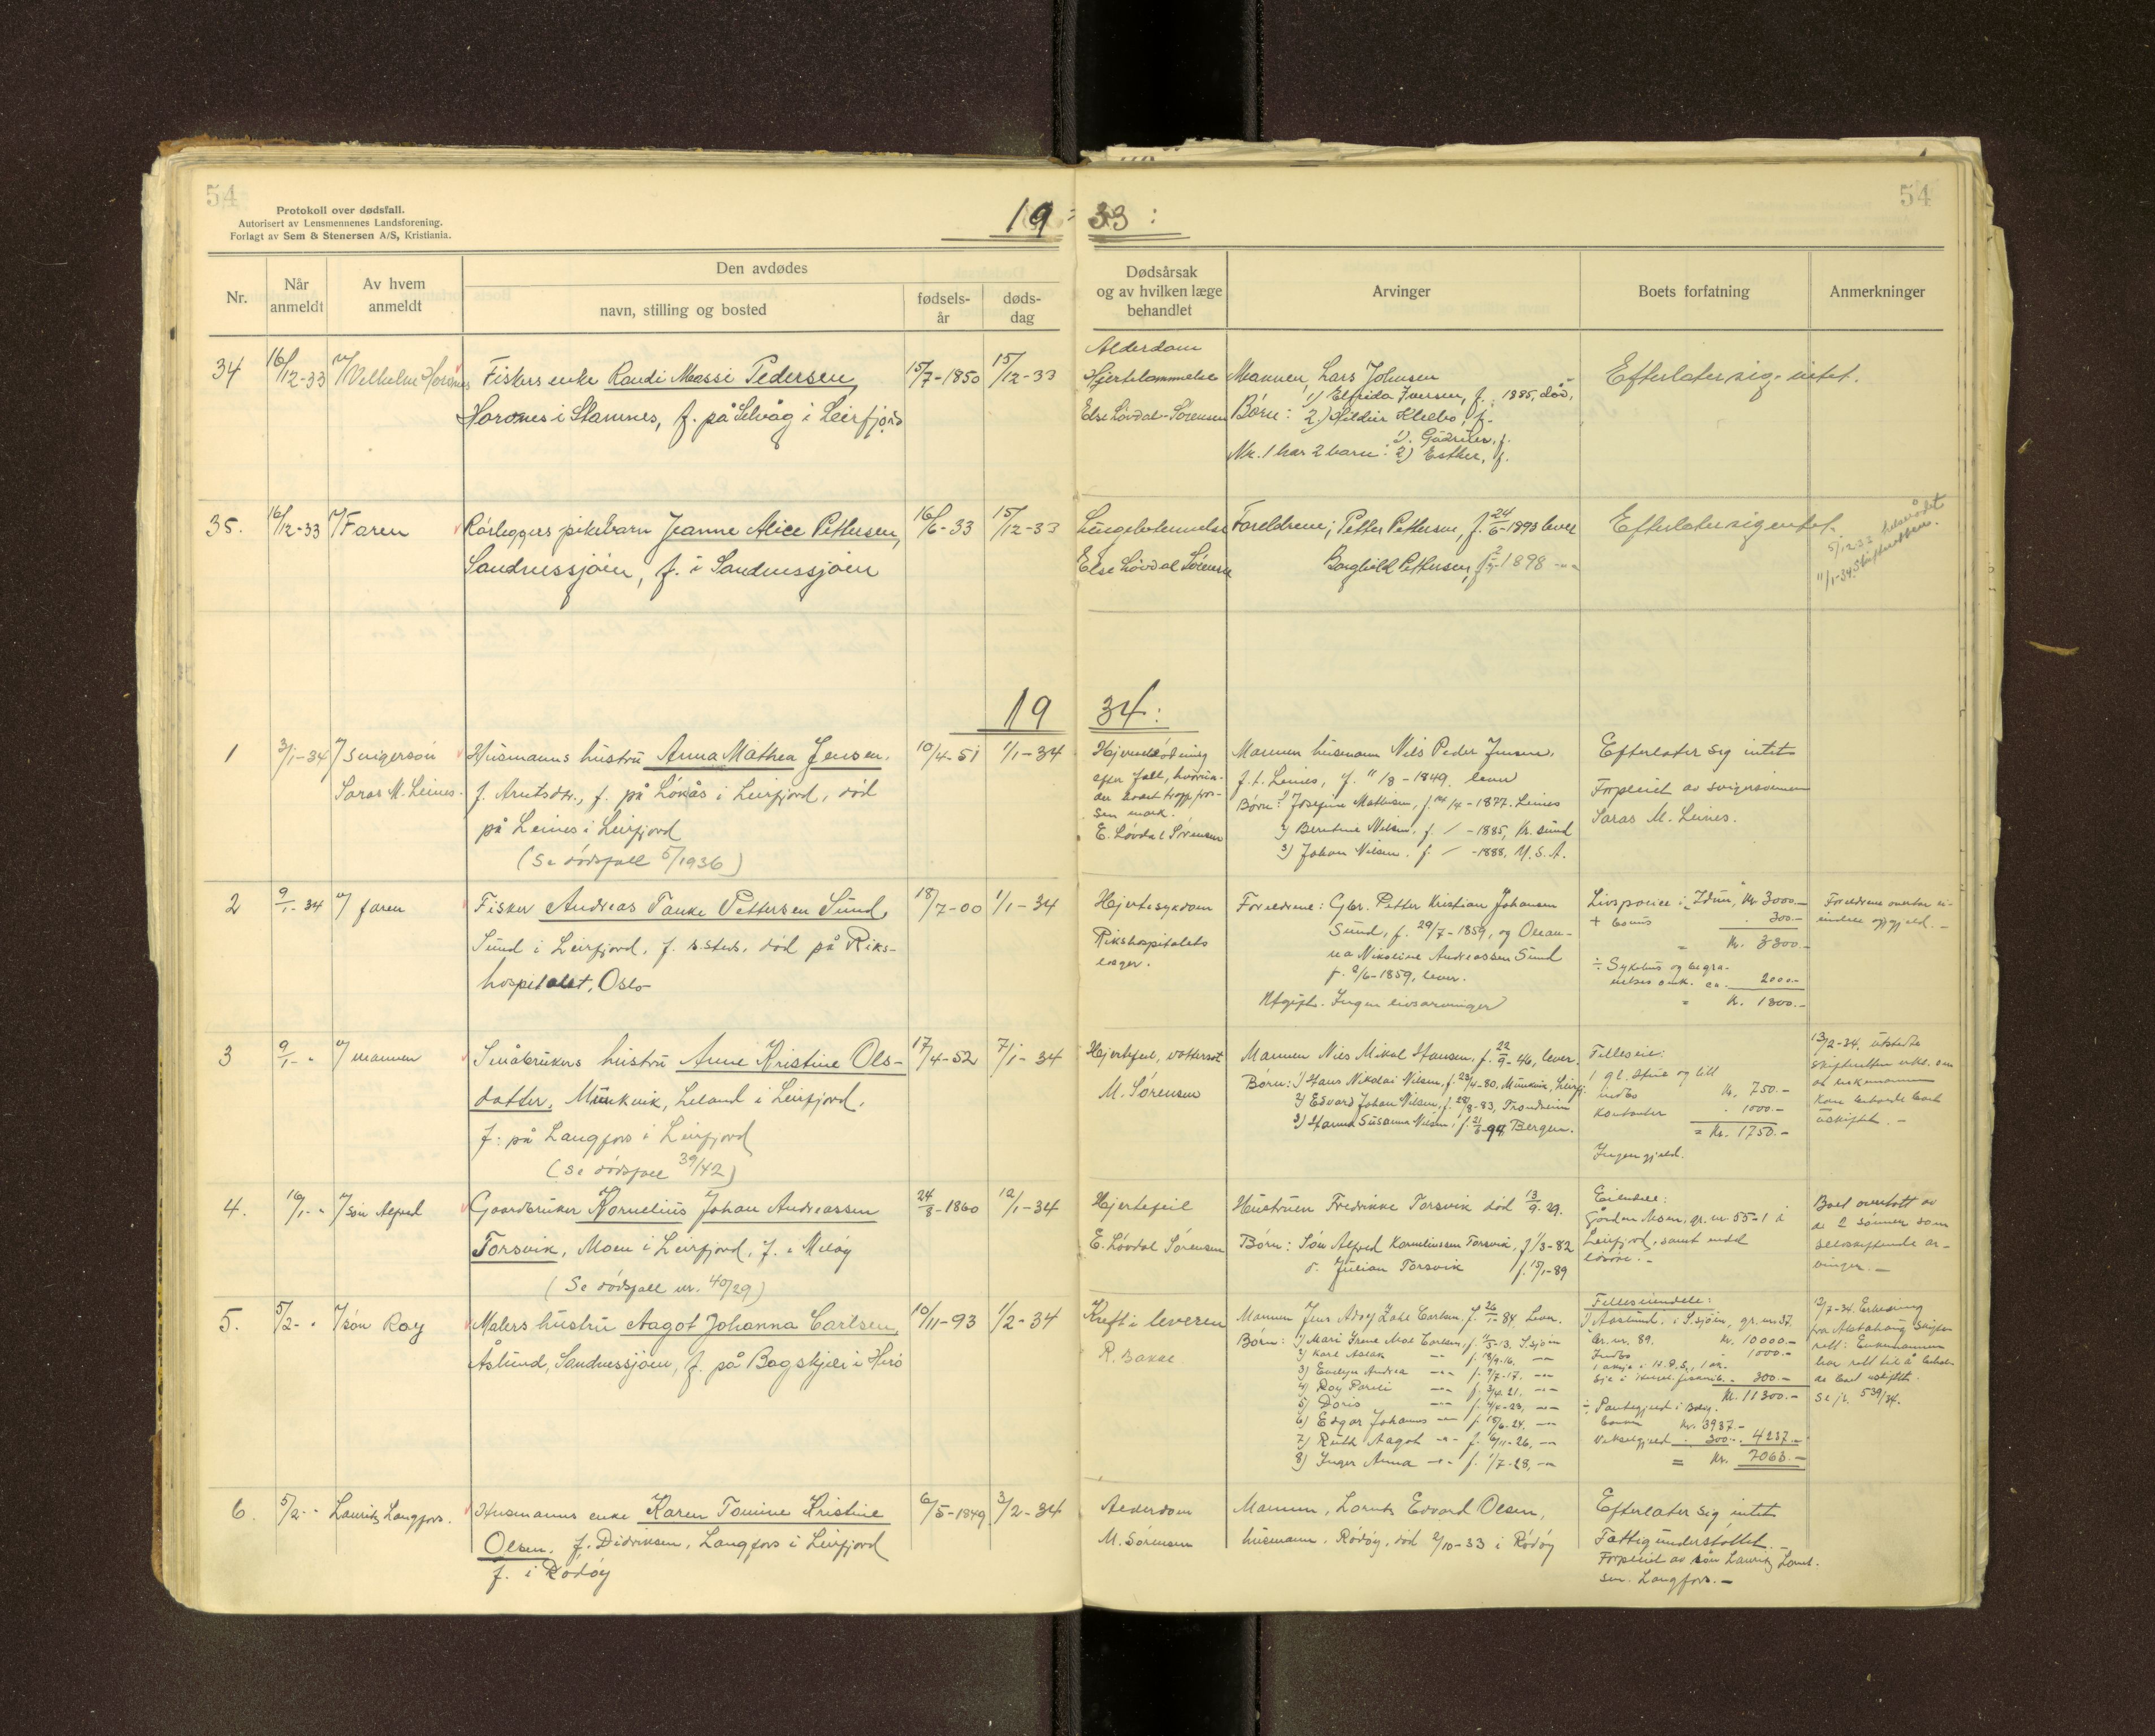 54
54
Protokoll over dødsfall.
Autorisert av Lensmennenes Landsforening.
Forlagt av Sem & Stenersen A/S, Kristiania.
19 33:
Nr.
Når anmeldt
Av hvem anmeldt
Den avdødes
navn, stilling og bosted
fødsels-år
døds-dag
Dødsårsak og av hvilken læge behandlet
Arvinger
Boets forfatning
Anmerkninger
34 16/12-33 Fiskers enke Randi Massi Pedersen, 15/7-1850 15/12-33
i Stamnes, f. på Selvåg i Leirfjord
Alderdom
Hjertelammelse
Else Løvdal-Sørensen
Mannen, Lars Johnsen
1) Elfrida Iversen, f. 1885, død,
Børn: 2) Kleebo, f.
Nr. 1 har 2 barn: 2) Esther, f.
Efterlater sig intet.
35. 16/12-33 Faren Rørleggers pikebarn Jeanne Alice Pettersen, 16/6-33 15/12-33
Sandnessjøen, f. i Sandnessjøen
Lungebetennelse
Else Løvdal Sørensen
Foreldrene; Petter Pettersen, f. 24/6-1893 lever
Borghild Pettersen, 1898
Efterlater sig intet.
19 34:
1 3/1-34 Svigersøn Husmanns hustru Anna Mathea Jensen, 10/4-51 1/1-34
Saras M. Leines.
f. Arntsdtr., f. på Løkås i Leirfjord, død
på Leines i Leirfjord
(Se dødsfall 5/1936)
efter fall,
E. Løvdal Sørensen
Mannen husmann Nils Peder Jensen,
f. t. Leines, f. 11/8-1849. lever
Børn: 1) Josefine Mathisen, f. 14/4-1877. Leines
2) Berntine Nilsen, f. / -1885, Kr. sund
3) Johan Nilsen, f. / -1888, U.S.A.
Efterlater sig intet
Forpleiet av svigersønnen
Saras M. Leines.
2 9/1-34 faren Fisker Andreas Tanke Pettersen Sund, 18/7-00 1/1-34
Sund i Leirfjord, f. s.steds, død på Riks-
hospitalet, Oslo
Hjertesykdom
Rikshospitalets
læger.
Foreldrene: Gbr. Petter Kristian Johansen
Sund, f. 29/7-1859, og Ocean-
ea Nikoline Andreassen Sund
f. 2/6-1859, lever.
Ugift. Ingen livsarvinger
Livspolice i Idun, Kr. 3000.-
+ bonus 300.-
= Kr. 3300.-
÷ Sykehus og begra-
velses omk. ca. 2000.-
= Kr. 1300.-
Foreldrene overtar ei-
endele og gjeld.-
3 9/1- " mannen Småbrukers hustru Anne Kristine Ols- 17/4-52 7/1-34
datter, Munkvik, Leland i Leirfjord,
f. på Langfors i Leirfjord
(Se dødsfall 39/42)
Hjertefeil, vattersot
M. Sørensen
Mannen Nils Mikal Hansen, f. 22/9-46, lever.
Børn: 1) Hans Nikolai Nilsen, f. 23/4-80, Munkvik, Leirfj.
2) Edvard Johan Nilsen, f. 28/8-83, Trondheim
3) Hanna Susanna Nilsen, f. 21/6-94 Bergen.
Felleseie:
1 gl. stue og litt
indbo Kr. 750.-
Kontanter 1000.-
= Kr. 1750.-
Ingen gjeld.
13/2-34. utstedte
skifteretten erkl. om
at enkemannen
kan beholde boet
uskiftet.-
4. 16/1- " søn Alfred Gaardbruker Kornelius Johan Andreassen 24/8-1860 12/1-34
Forsvik, Moen i Leirfjord, f. i Meløy
(Se dødsfall nr. 40/29)
Hjertefeil
E. Løvdal Sørensen
Hustruen Fredrikke Torsvik død 13/9.29.
Børn: Søn Alfred Korneliussen Torsvik, f. 1/3-82
d. Julian Torsvik f. 15/1-89
Eiendele:
Gården Moen, gr. nr. 55-1 i
Leirfjord, samt endel
løsøre.-
Boet overtatt av
de 2 sønner som
selvskiftende ar-
vinger.-
5. 5/2- " søn Roy Malers hustru Aagot Johanna Carlsen, 10/11-93 1/2-34
Åslund, Sandnessjøen, f. på Bogskjær i Herø
Kreft i leveren
Mannen Jens Adolf Carlsen, f. 26/1-84. Lever.
Børn: 1) Mari Irene Carlsen, f. 1/3-13. S.sjøen
2) Karl Aslak f. 18/9-16.
3) Evelyn Andrea f. 9/7-17.
4) Roy f. 3/4.21.
5) Doris f. 4/4-23,
6) Edgar Johannes f. 15/6-24.
7) Ruth Aagot f. 6/11-26,
8) Inger Anna f. 1/7-28,
Felleseiendele:
1) Aaslund i S.sjøen, gr. nr. 37
br. nr. 89. Kr. 10000.-
Indbo 1000.-
300.-
Kr. 11300.-
÷ Pantegjeld
Kr. 3937.-
Vekselgjeld 300.- 4237.-
= Kr. 7063.-
12/7-34. Erklæring
fra Alstahaug skifte-
rett: Enkemannen
har rett til å behol-
de boet uskiftet.
Se j. 539/34.
6. 5/2- " Lauritz Langfors. Husmanns enke Karen Tomine Kristine 6/5-1849 3/2-34
Olsen, f. Didriksen, Langfors i Leirfjord
f. i Rødøy
Alderdom
M. Sørensen
Mannen, Lorntz Edvard Olsen,
husmann, Rødøy, død 2/10-33 i Rødøy
Efterlater sig intet
Fattigunderstøttet.-
Forpleiet av søn Lauritz Lornt-
sen. Langfors.-